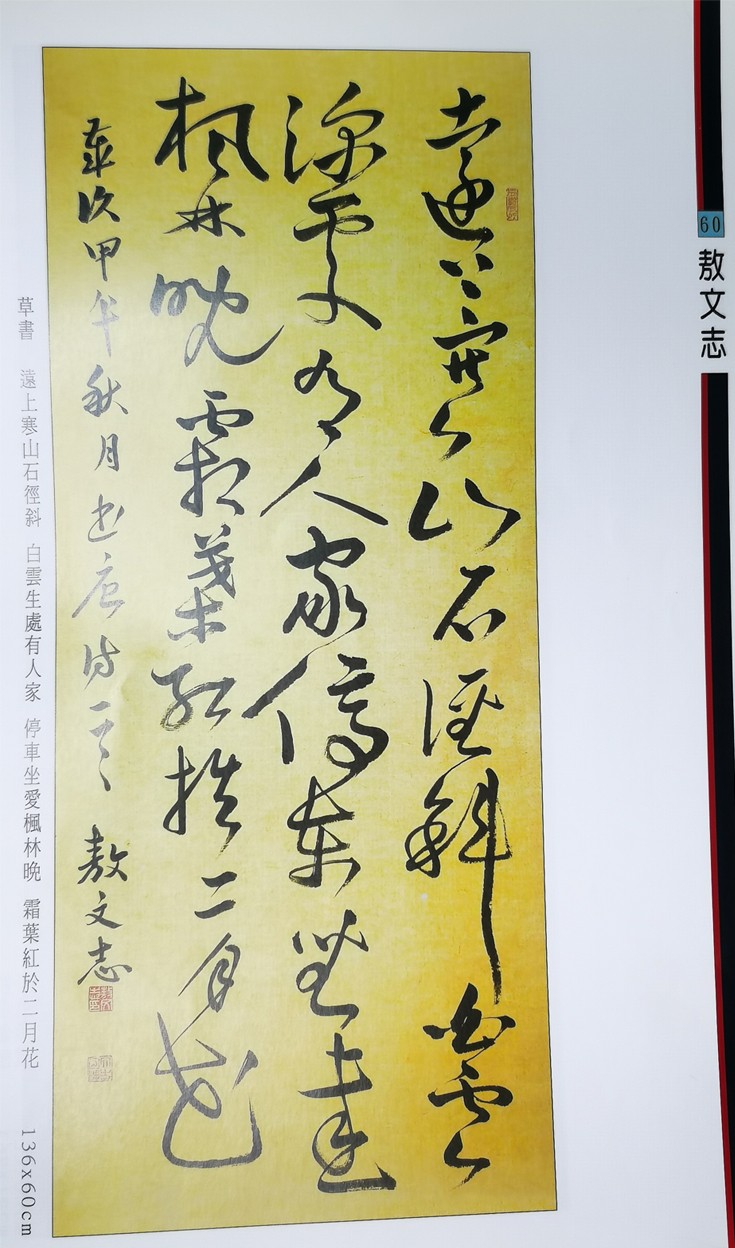 60
敖文志
遠上寒山石徑斜白雲
深處有人家停車坐愛
楓林晚霜葉紅於二月花
歲次甲午秋月書唐詩一首 敖文志
草書 遠上寒山石徑斜 白雲生處有人家 停車坐愛楓林晚 霜葉紅於二月花 136x60cm